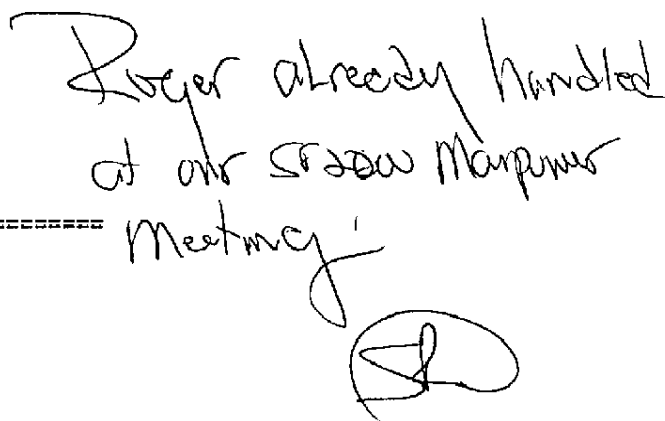 Roger already handled
at our Manpower
Meeting.